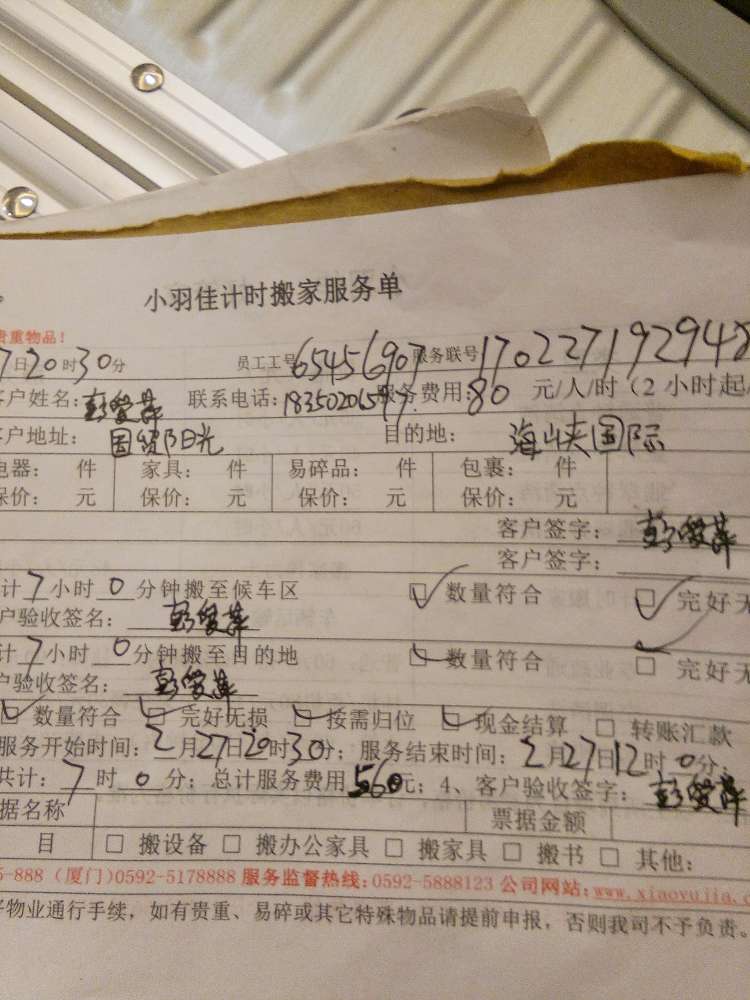 小羽佳计时搬家服务单
贵重物品！
7日20时30分 员工工号65456907服务联号170227192948
客户姓名：彭爱萍 联系电话：183502065 服务费用：80 元/人/时（2小时起
客户地址： 国贸阳光 目的地： 海峡国际
电器： 件 家具： 件 易碎品： 件 包裹： 件
保价： 元 保价： 元 保价： 元 保价： 元
客户签字：彭爱萍
客户签字：
计7小时0分钟搬至候车区 ☑数量符合 ☑完好无
户验收签名：彭爱萍
计7小时0分钟搬至目的地 ☑数量符合 ☑完好无
户验收签名：彭爱萍
☑数量符合 ☑完好无损 ☑按需归位 ☑现金结算 □转账汇款
服务开始时间：2月27日20时30分；服务结束时间：2月27日12时0分；
共计：7时0分；总计服务费用560元；4、客户验收签字：彭爱萍
据名称 票据金额
目 □搬设备 □搬办公家具 □搬家具 □搬书 □其他：
5-888（厦门）0592-5178888 服务监督热线：0592-5888123 公司网站：www.xiaoyujia.c
物业通行手续，如有贵重、易碎或其它特殊物品请提前申报，否则我司不予负责。